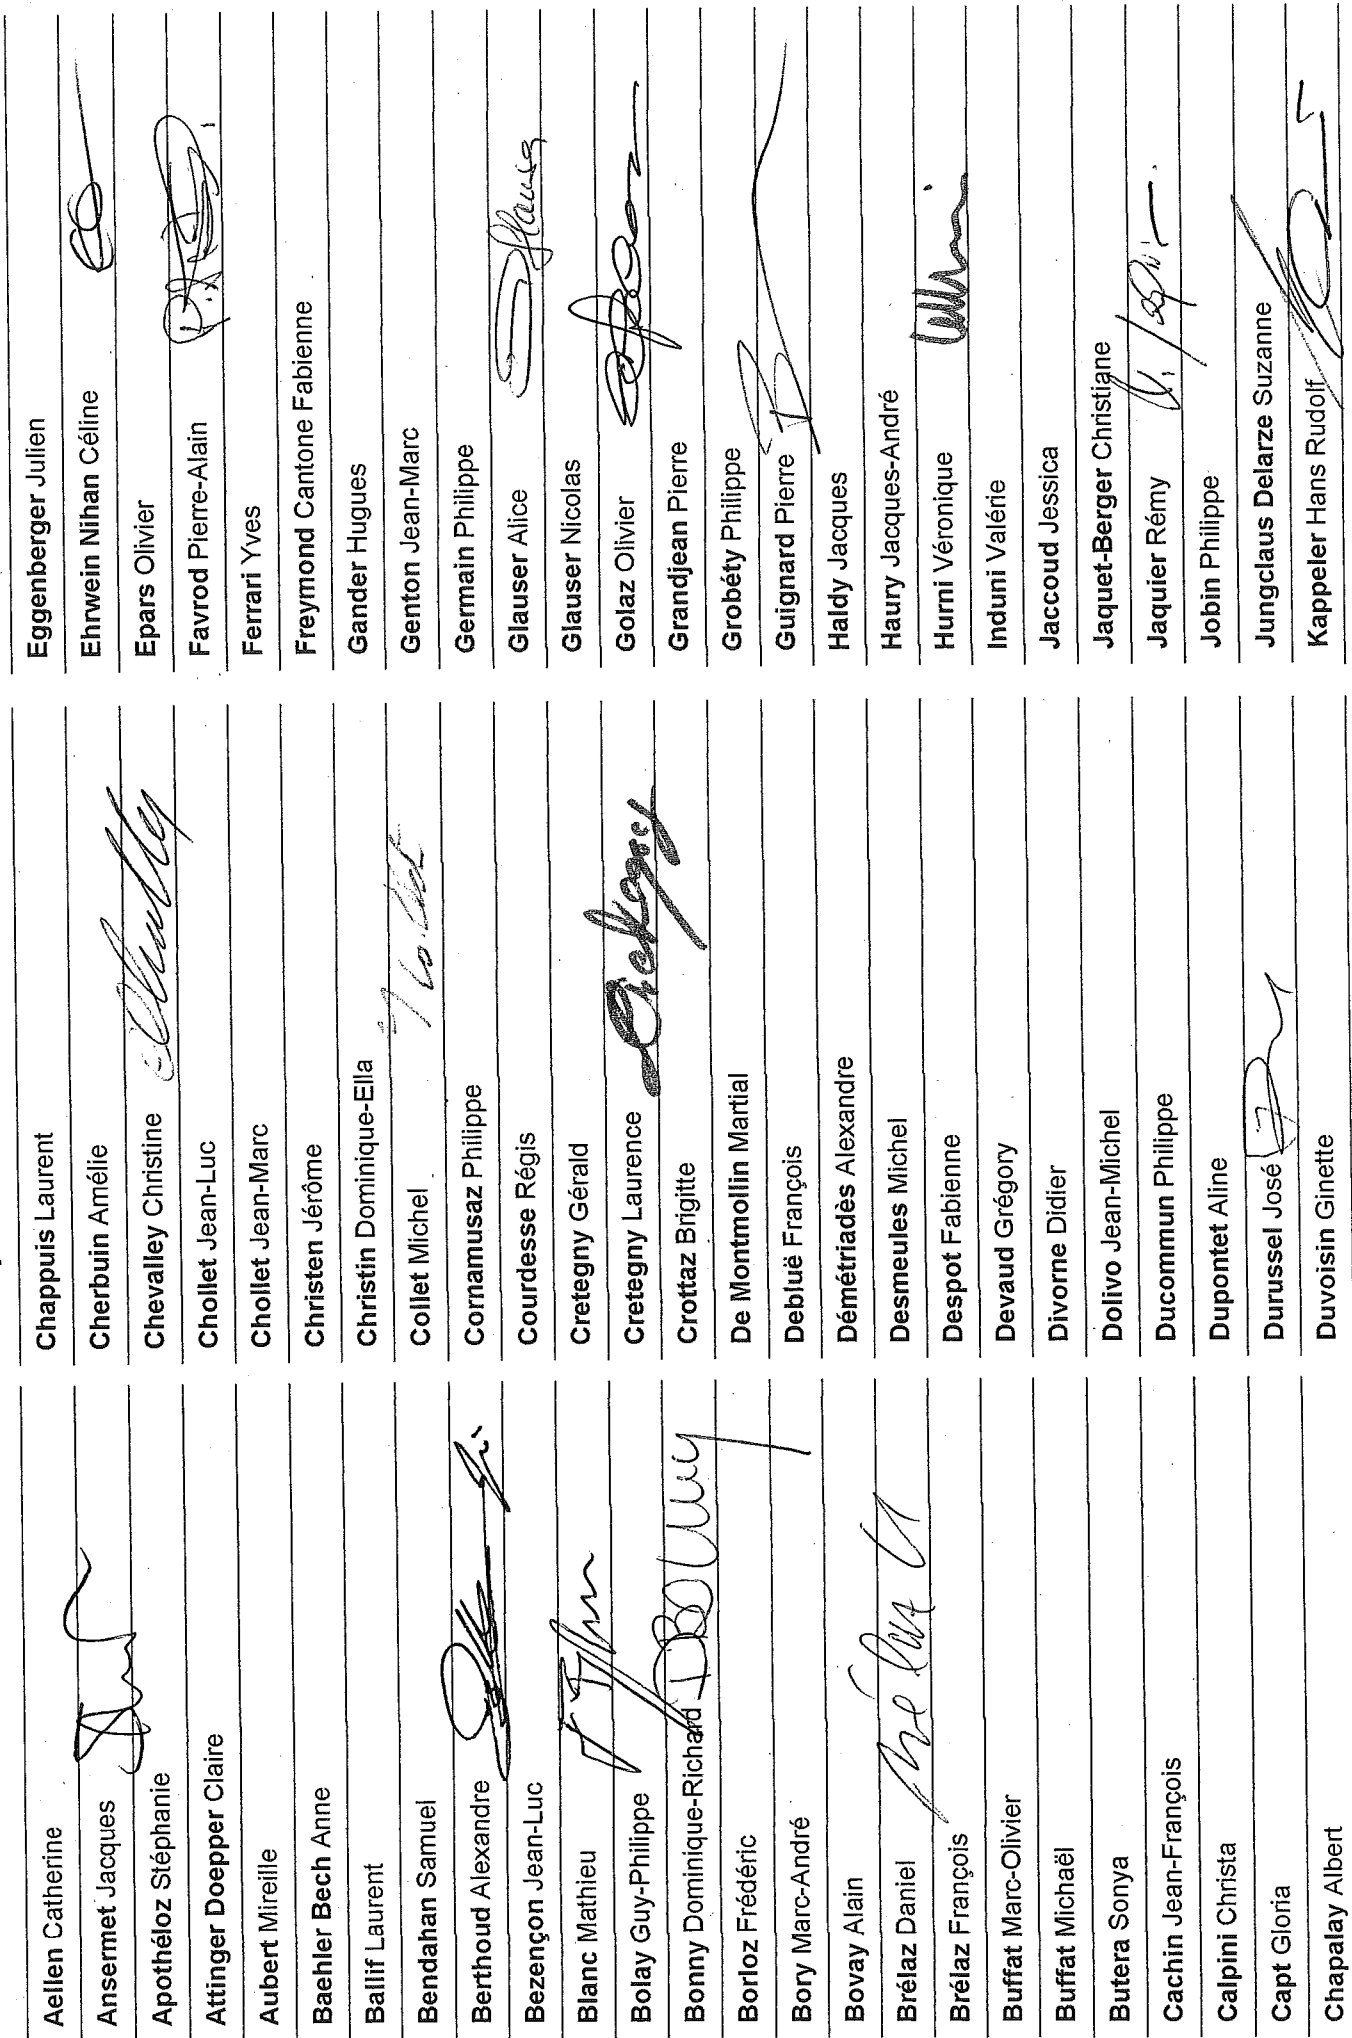 Aellen Catherine
Ansermet Jacques
Apothéloz Stéphanie
Attinger Doepper Claire
Aubert Mireille
Baehler Bech Anne
Ballif Laurent
Bendahan Samuel
Berthoud Alexandre
Bezençon Jean-Luc
Blanc Mathieu
Bolay Guy-Philippe
Bonny Dominique-Richard
Borloz Frédéric
Bory Marc-André
Bovay Alain
Brélaz Daniel
Brélaz François
Buffat Marc-Olivier
Buffat Michaël
Butera Sonya
Cachin Jean-François
Calpini Christa
Capt Gloria
Chapalay Albert
Chappuis Laurent
Cherbuin Amélie
Chevalley Christine
Chollet Jean-Luc
Chollet Jean-Marc
Christen Jérôme
Christin Dominique-Ella
Collet Michel
Cornamusaz Philippe
Courdesse Régis
Cretegny Gérald
Cretegny Laurence
Crottaz Brigitte
De Montmollin Martial
Debluë François
Démétriadès Alexandre
Desmeules Michel
Despot Fabienne
Devaud Grégory
Divorne Didier
Dolivo Jean-Michel
Ducommun Philippe
Dupontet Aline
Durussel José
Duvoisin Ginette
Eggenberger Julien
Ehrwein Nihan Céline
Epars Olivier
Favrod Pierre-Alain
Ferrari Yves
Freymond Cantone Fabienne
Gander Hugues
Genton Jean-Marc
Germain Philippe
Glauser Alice
Glauser Nicolas
Golaz Olivier
Grandjean Pierre
Grobéty Philippe
Guignard Pierre
Haldy Jacques
Haury Jacques-André
Hurni Véronique
Induni Valérie
Jaccoud Jessica
Jaquet-Berger Christiane
Jaquier Rémy
Jobin Philippe
Jungclaus Delarze Suzanne
Kappeler Hans Rudolf